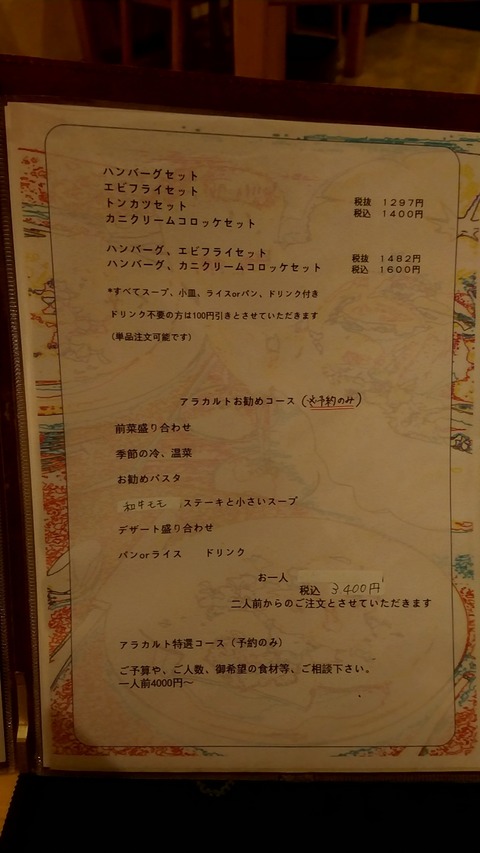 ハンバーグセット
エビフライセット
トンカツセット 税抜 1297円
カニクリームコロッケセット 税込 1400円
ハンバーグ、エビフライセット 税抜 1482円
ハンバーグ、カニクリームコロッケセット 税込 1600円
*すべてスープ、小皿、ライスorパン、ドリンク付き
ドリンク不要の方は100円引きとさせていただきます
(単品注文可能です)
アラカルトお勧めコース (※予約のみ)
前菜盛り合わせ
季節の冷、温菜
お勧めパスタ
和牛モモ ステーキと小さいスープ
デザート盛り合わせ
パンorライス ドリンク
お一人
税込 3400円
二人前からのご注文とさせていただきます
アラカルト特選コース(予約のみ)
ご予算や、ご人数、御希望の食材等、ご相談下さい。
一人前4000円～